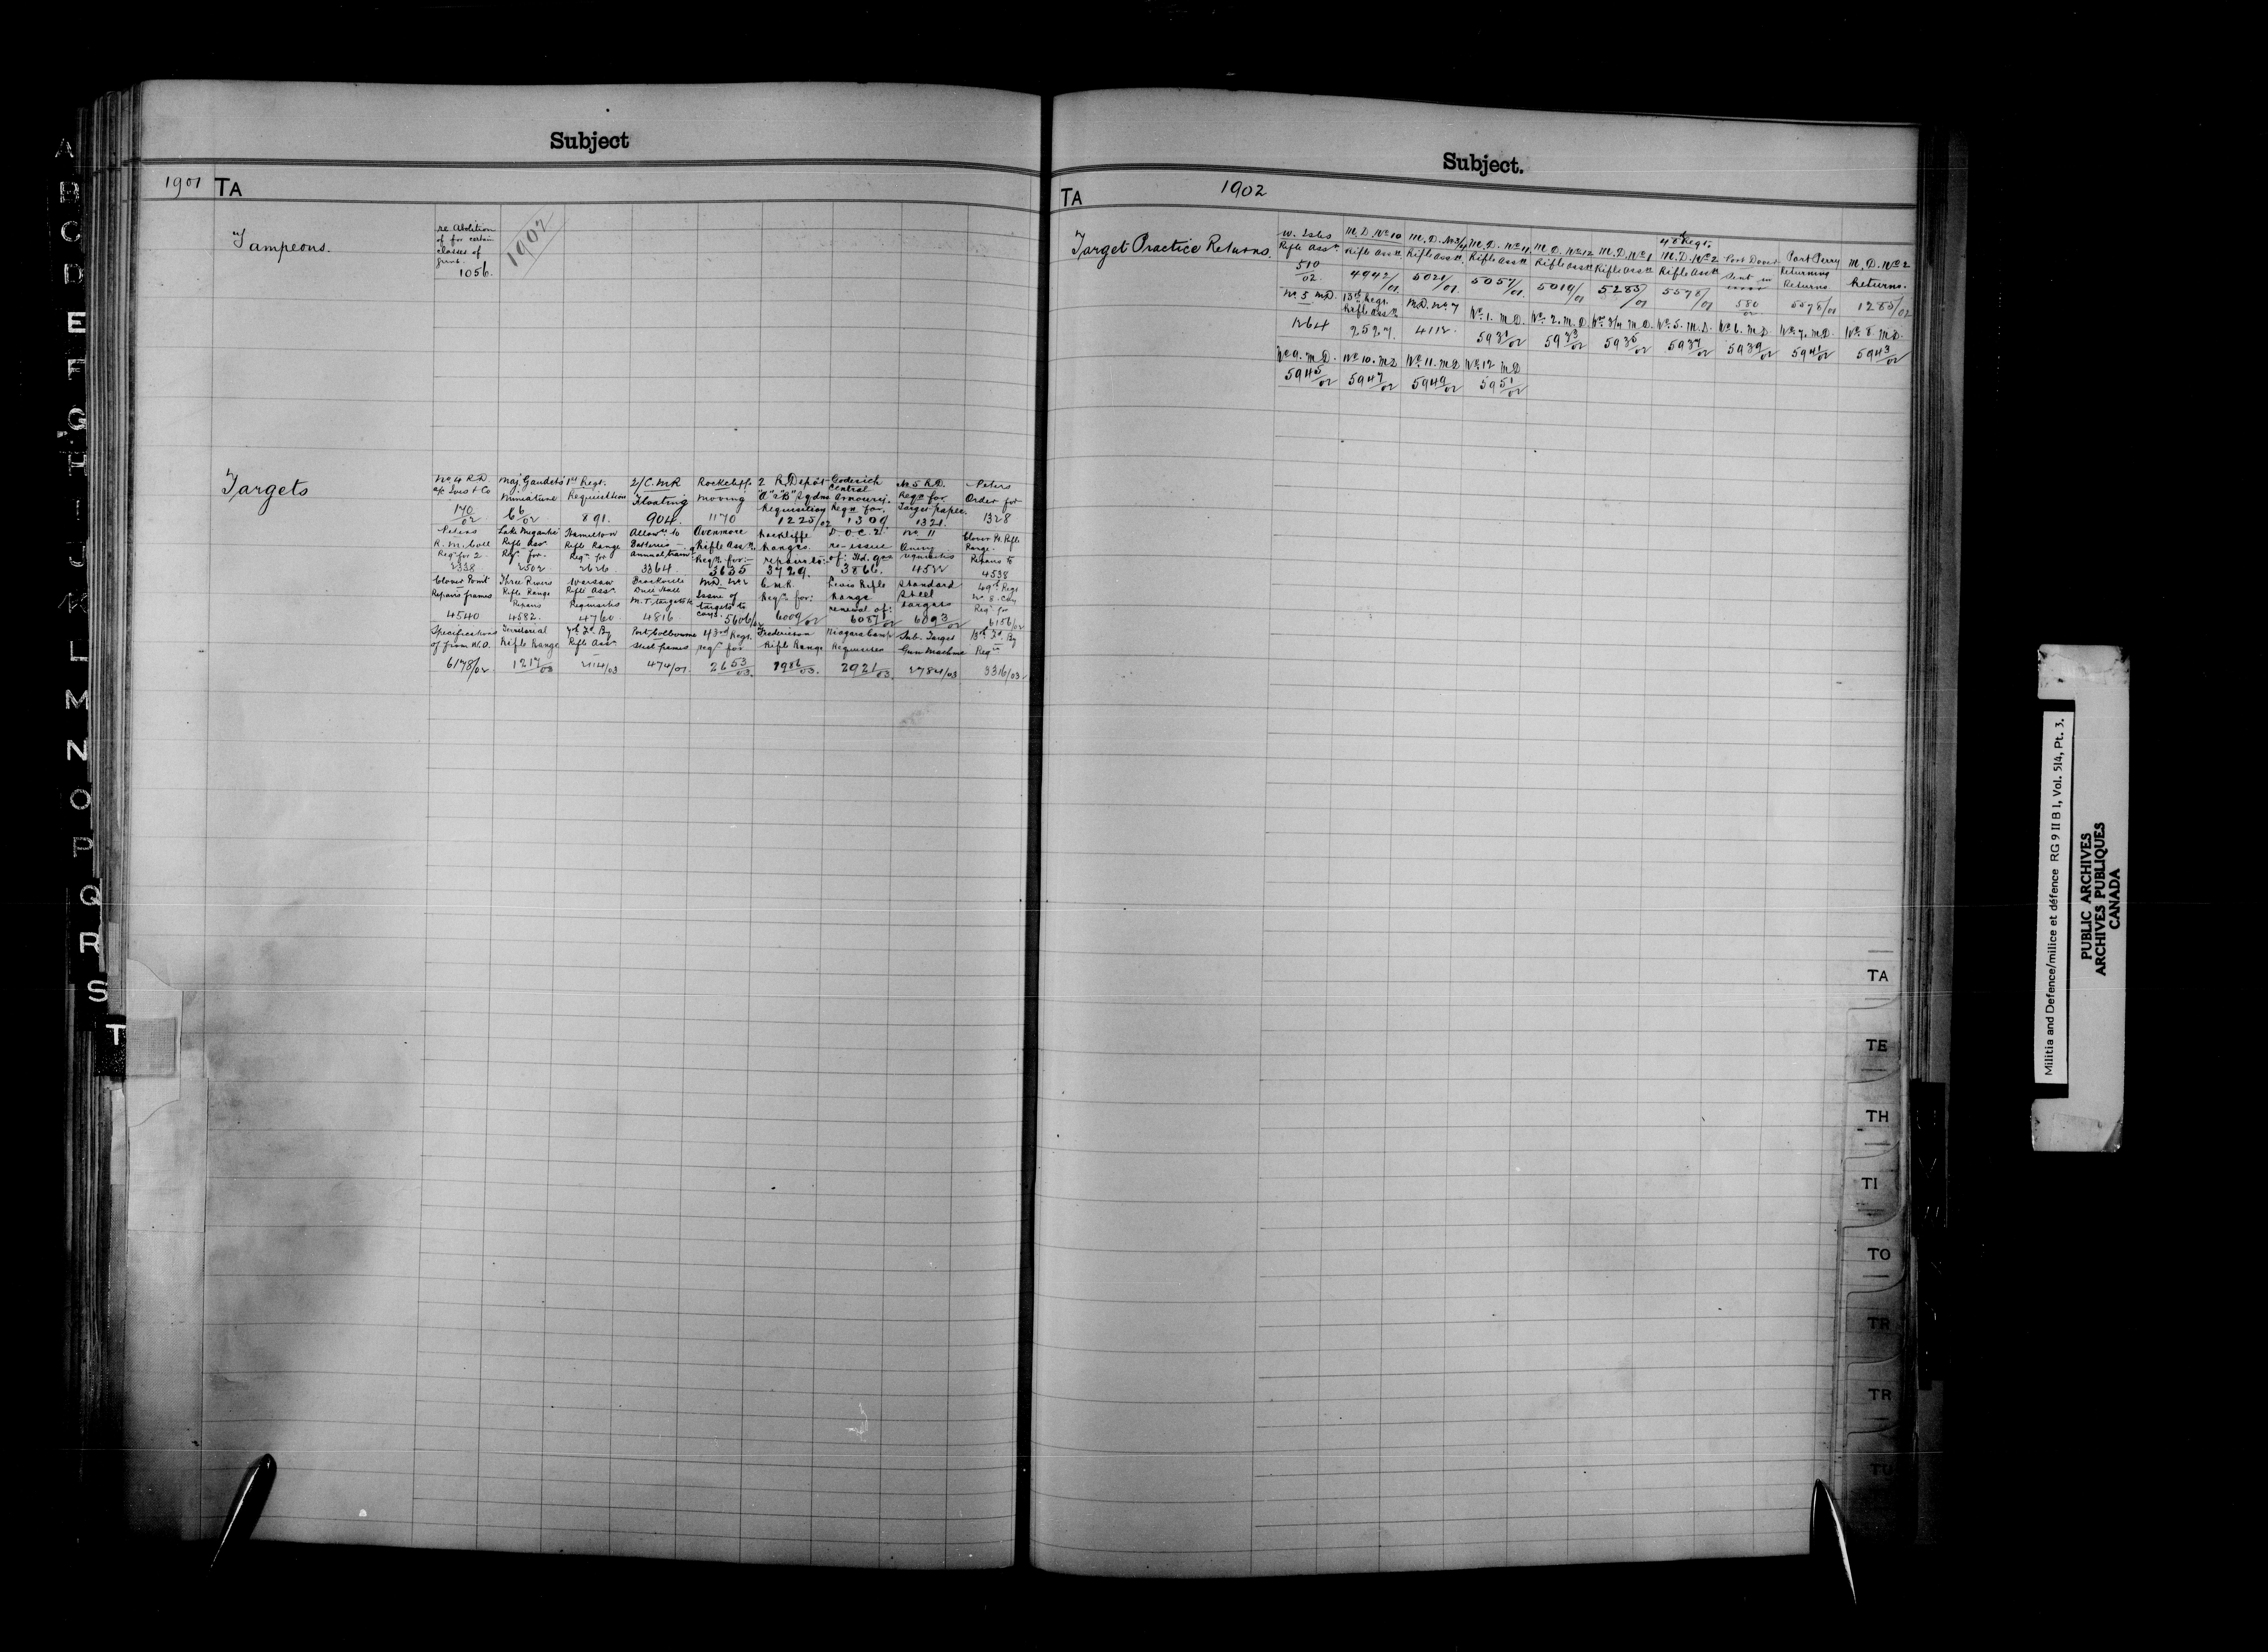 Subject
1901 TA
Tampeons.
re Abolition
of for certain
classes of
1056.
1902
Targets
No 4 R.D.
170/02
Maj. Gaudet's
Miniature
66/02
1st Regt.
Requisition
891.
2/C.M.R
Floating
904.
Rockcliffe
moving
1170
2 R.Depôt
"A" & "B" Sqdns
Requisition
1225/02
Goderich
Central
Armoury.
Reqn for.
1309
No 5 R.D.
Reqn for
Target paper.
1321.
Peters
Order for
1328
Peters
R.M. Coll
Reqn for 2
2338
Lake Megantic
Rifle Assn
Reqn for.
2502
Hamilton
Rifle Range
Reqn for
2626
Allowce to
Batteries
Annual train
3364.
Avonmore
Rifle Assn.
Reqn. for:-
3635
Rockliffe
Ranges
repairs to:
3729.
D.O.C. 2.
re-issue
of:
3866.
No 11
requisition
4522
Clover Pt. Rifle
Range.
Repairs to
4538
Clover Point
Repairs frames
4540
Three Rivers
Rifle Range
Repairs
4582.
Warsaw
Rifle Assn
Requisition
4760.
Brockville
Drill Hall
M.T. targets
4816
M.D. No 2
Issue of
targets to
5606/02
C.M.R.
Reqn for:
6009/02
Levis Rifle
Range
renewal of:
6087/02
Standard
Steel
targets
6093/02
49th Regt
No 8. Coy
Reqn for
6156/02
Specifications
of from W.O.
6178/02
Territorial
Rifle Range
1217/03
7th Fd. By
Rifle Assn
2114/03
Port Colbourne
Steel frames
474/01
43rd Regt.
reqn for
2653/03.
Fredericton
Rifle Range
1986/03.
Niagara Camp
Requisites
2921/03.
Sub. Target
Gun Machine
2784/03
13th Fd. By
Reqn
3316/03
Subject.
TA 1902
Target Practice Returns.
W. Isles
Rifle Assn.
510/02.
M.D. No 10
Rifle Assn
4942/01.
M.D. No 3/4
Rifle Assn
5021/01.
M.D. No 11
Rifle Assn
5057/01.
M.D. No 12
Rifle Assn
5019/01
M.D. No 1
Rifle Assn
5285/01
M.D. No 2
Rifle Assn
5578/01
Port Dover
Sent in
580/02
Port Perry
Returning
Returns
5578/01
M.D. No 2
Returns.
1285/02
No 5 M.D.
1264
13th Regt.
Rifle Assn
2527.
M.D. No 7
4112.
No. 1. M.D.
5931/02
No. 2. M.D.
5933/02
No 3/4 M.D.
5935/02
No. 5. M.D.
5937/02
No 6. M.D
5939/02
No. 7. M.D.
5941/02
No. 8 M.D.
5943/02
No 9. M.D.
5945/02
No 10. M.D
5947/02
No 11. M.D
5949/02
No 12 M.D
5951/02
A
B
C
D
E
F
G
H
I
J
K
L
M
N
O
P
Q
R
S
T
TA
TE
TH
TI
TO
TR
TR
TU
Militia and Defence/milice et défence RG 9 II B 1, Vol. 514, Pt. 3.
PUBLIC ARCHIVES
ARCHIVES PUBLIQUES
CANADA